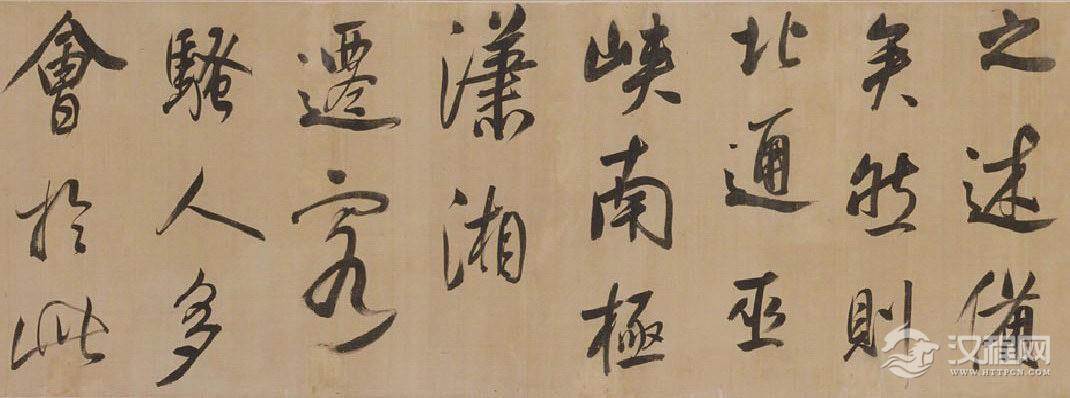 之述備
矣然則
北通巫
峽南極
瀟湘
遷客
騷人多
會於此
汉程网
WWW.HTTPCN.COM